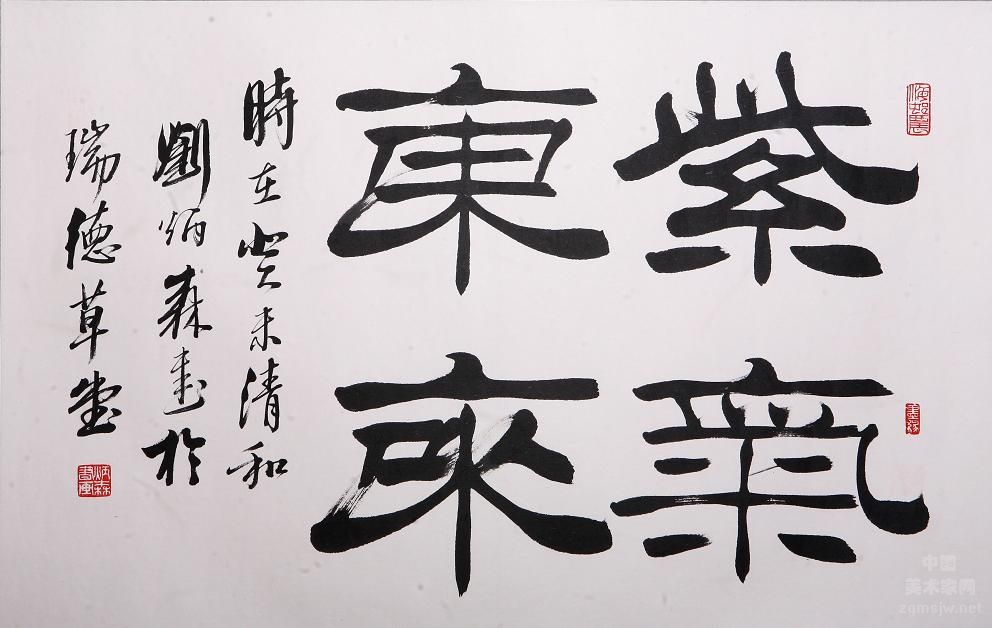 紫氣
東來
時在癸未清和
劉炳森書於
瑞德草堂
炳森
書画
中国
美术家网
zgmsjw.net